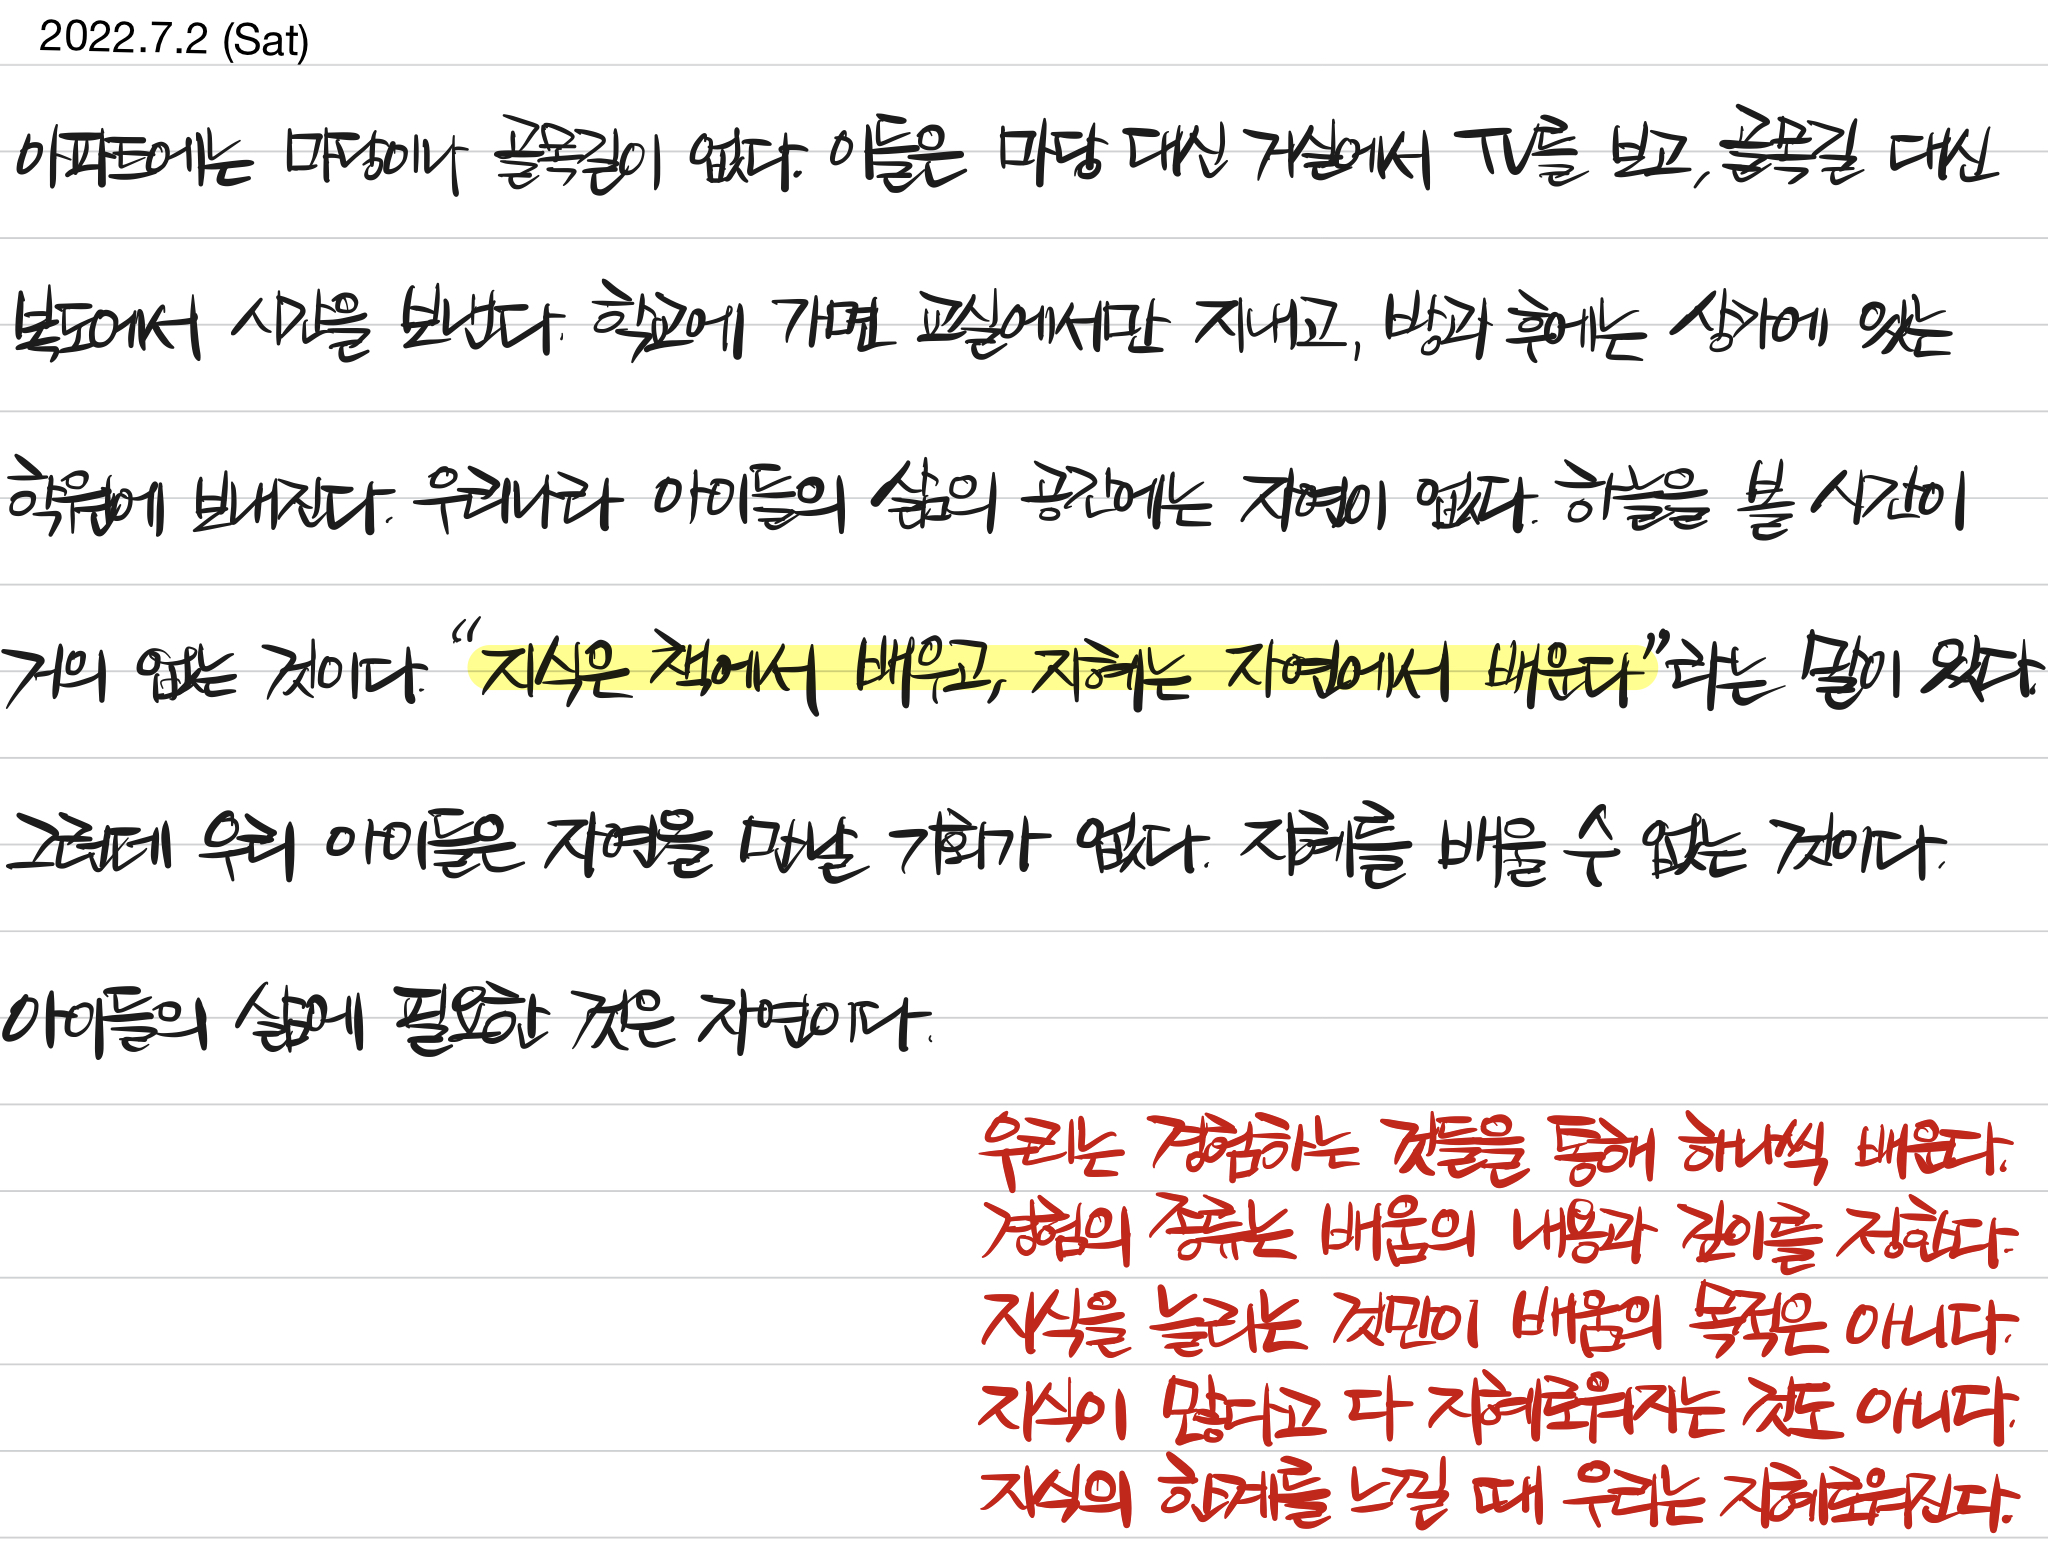 2022.7.2 (Sat)
아파트에는 마당이나 골목길이 없다. 이들은 마당 대신 거실에서 TV를 보고, 골목길 대신
복도에서 시간을 보낸다. 학교에 가면 교실에서만 지내고, 방과 후에는 상가에 있는
학원에 보내진다. 우리나라 아이들의 삶의 공간에는 자연이 없다. 하늘을 볼 시간이
거의 없는 것이다. “지식은 책에서 배우고, 지혜는 자연에서 배운다”라는 말이 있다.
그런데 우리 아이들은 자연을 만날 기회가 없다. 지혜를 배울 수 없는 것이다.
아이들의 삶에 필요한 것은 자연이다.
우리는 경험하는 것들을 통해 하나씩 배운다.
경험의 종류는 배움의 내용과 깊이를 정한다.
지식을 늘리는 것만이 배움의 목적은 아니다.
지식이 많다고 다 지혜로워지는 것도 아니다.
지식의 한계를 느낄 때 우리는 지혜로워진다.